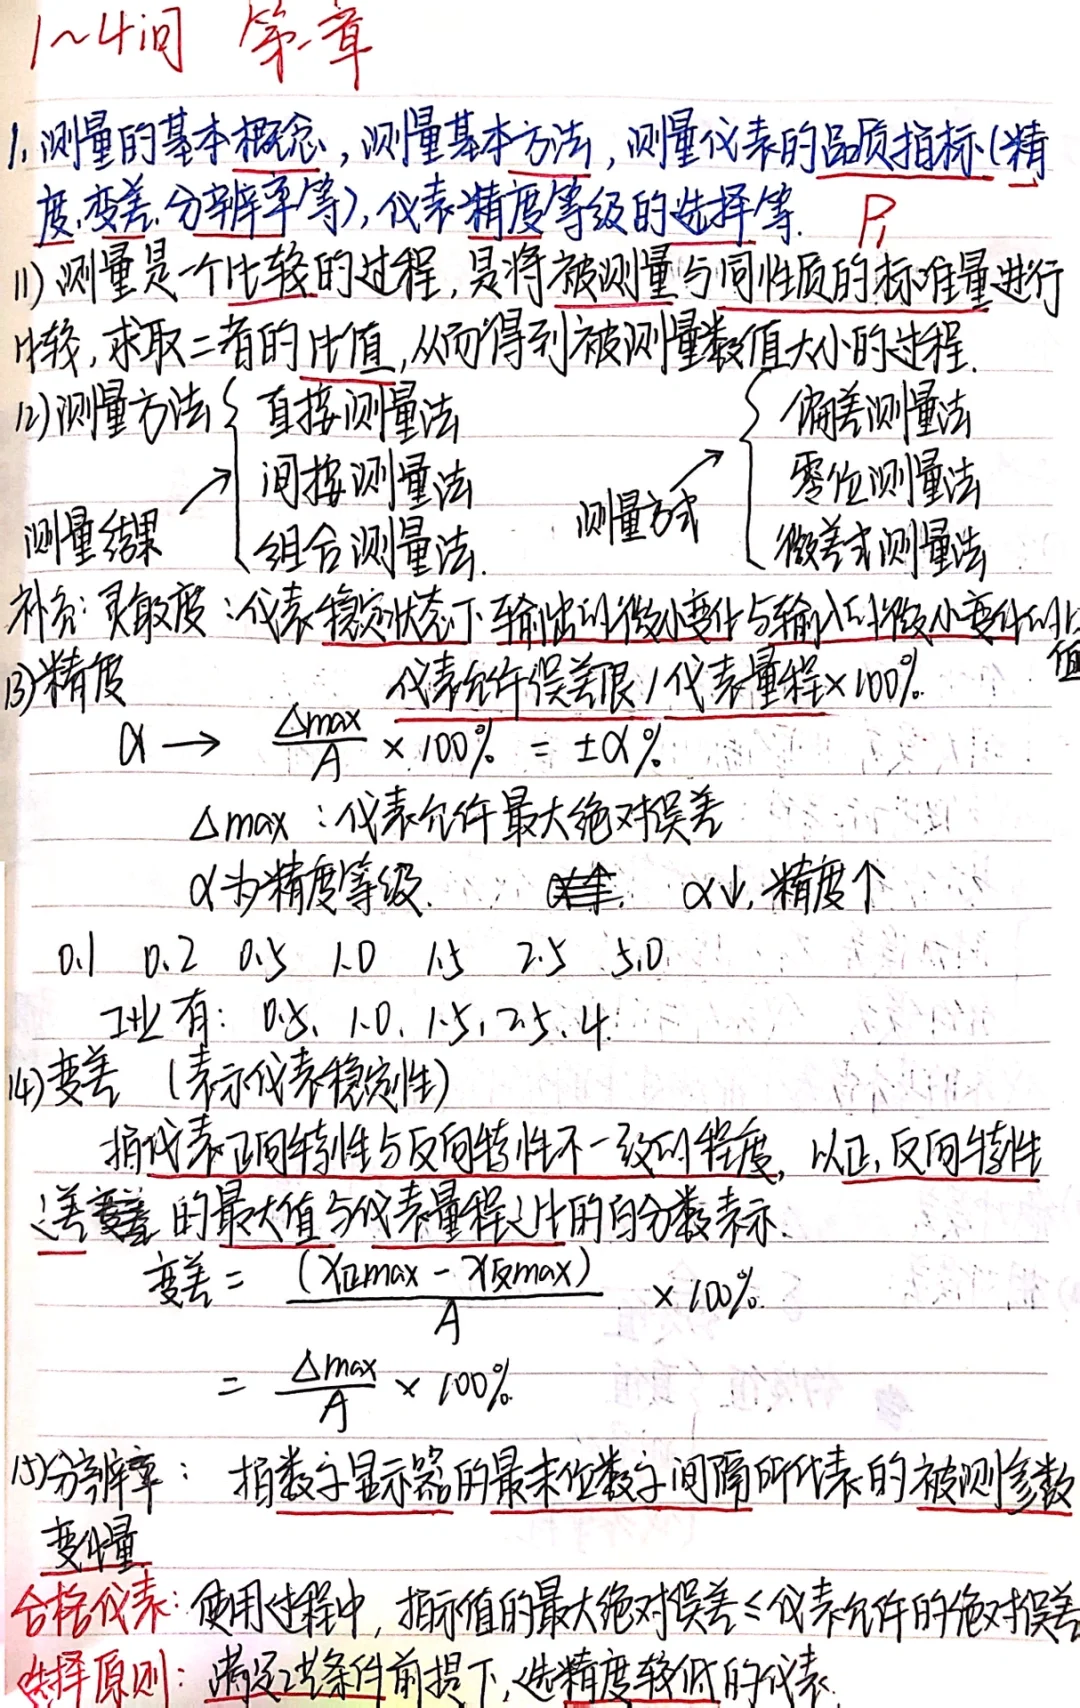 1~4问 第一章
1. 测量的基本概念, 测量基本方法, 测量仪表的品质指标(精
度、变差、分辨率等), 仪表精度等级的选择等. P1
(1) 测量是一个比较的过程, 是将被测量与同性质的标准量进行
比较, 求取二者的比值, 从而得到被测量数值大小的过程.
(2) 测量方法 { 直接测量法 { 偏差测量法
→ 间接测量法 → 零位测量法
测量结果 组合测量法. 测量方式 微差式测量法
补充: 灵敏度: 仪表稳定状态下输出的微小变化与输入的微小变化的比
值
(3) 精度 仪表允许误差限 / 仪表量程×100%
α → Δmax/A × 100% = ±α%
Δmax : 仪表允许最大绝对误差
α为精度等级. α↓, 精度个
0.1 0.2 0.5 1.0 1.5 2.5 5.0
工业有: 0.5、1.0、1.5、2.5、4.
(4) 变差 (表示仪表稳定性)
指仪表正向特性与反向特性不一致的程度, 以正、反向特性
之差的最大值与仪表量程之比的百分数表示.
变差 = (X正max - X反max)/A × 100%.
= Δmax/A × 100%
(5) 分辨率: 指数字显示器的最末位数字间隔所代表的被测参数
变化量
合格仪表: 使用过程中, 指示值的最大绝对误差≤仪表允许的绝对误差
选择原则: 满足工艺条件前提下, 选精度较低的仪表.